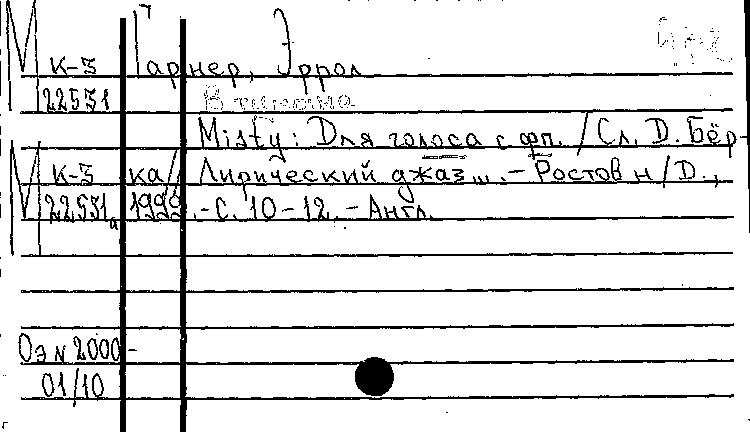 М К-5 Гарнер, Эррол
22531 В тумана
Misty: Для голоса с фп. / Сл. Д. Бёр-
М К-5 ка // Лирический джаз... - Ростов н/Д.,
22531а 1999. - С. 10-12. - Англ.
ОЭ N 2000-
01/10